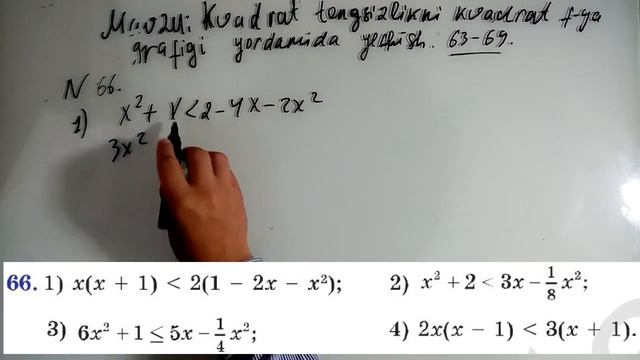 Mavzu: Kvadrat tengsizlikni kvadrat f-ya
grafigi yordamida yechish. 63-69.
N 66.
1) x² + x < 2 - 4x - 2x²
3x²
66. 1) x(x + 1) < 2(1 - 2x - x²); 2) x² + 2 < 3x - 1/8 x²;
3) 6x² + 1 ≤ 5x - 1/4 x²; 4) 2x(x - 1) < 3(x + 1).